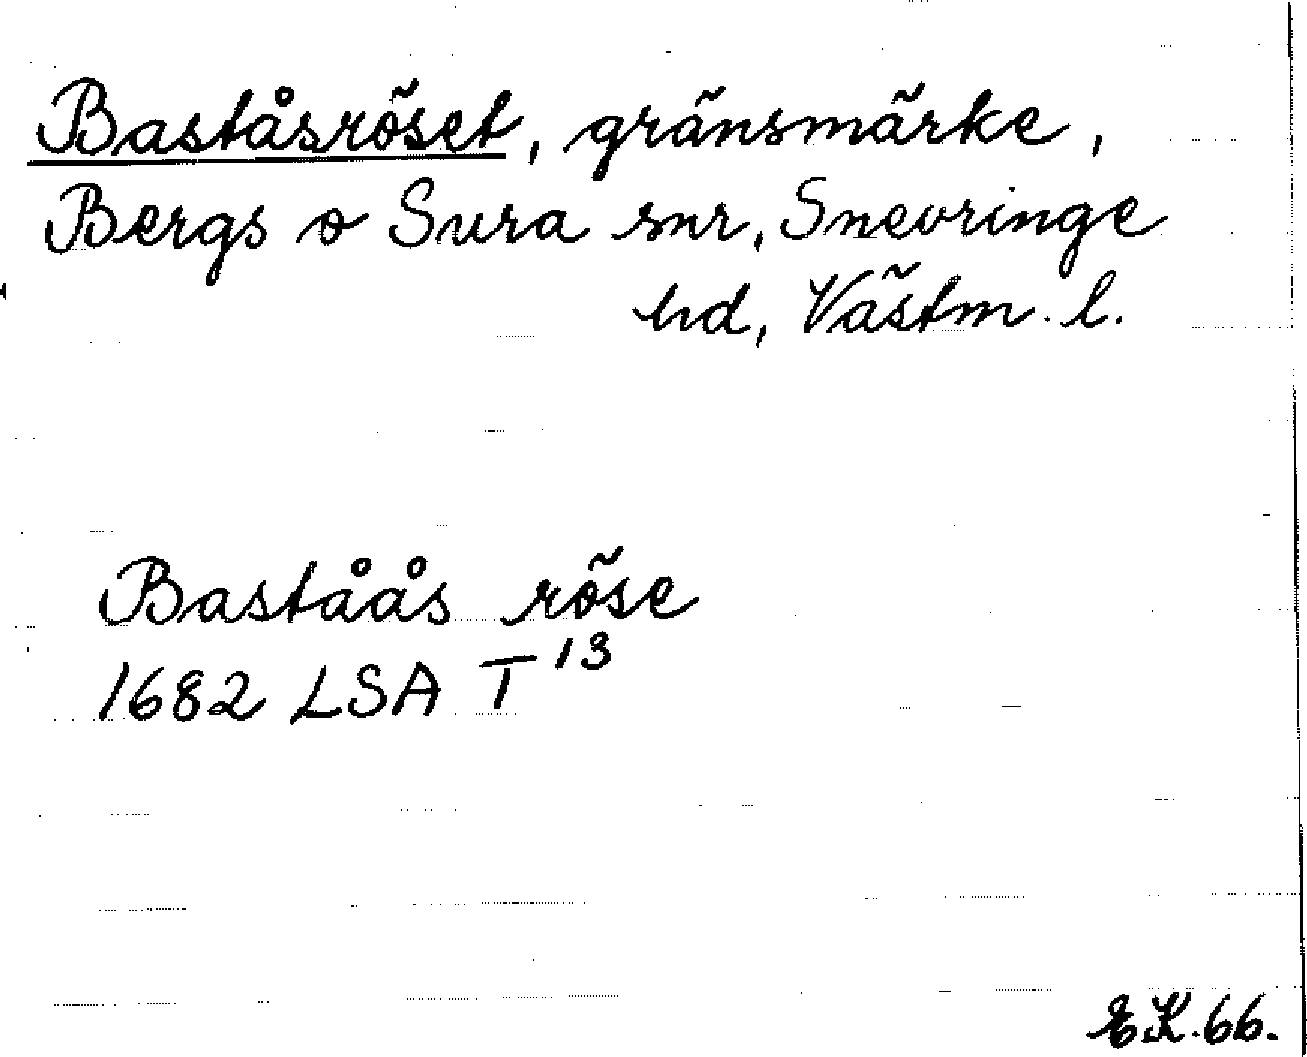 Baståsröset, gränsmärke,
Bergs o Sura snr, Snevringe
hd, Västm. l.
Baståås röse
1682 LSA T¹³
EK. 66.